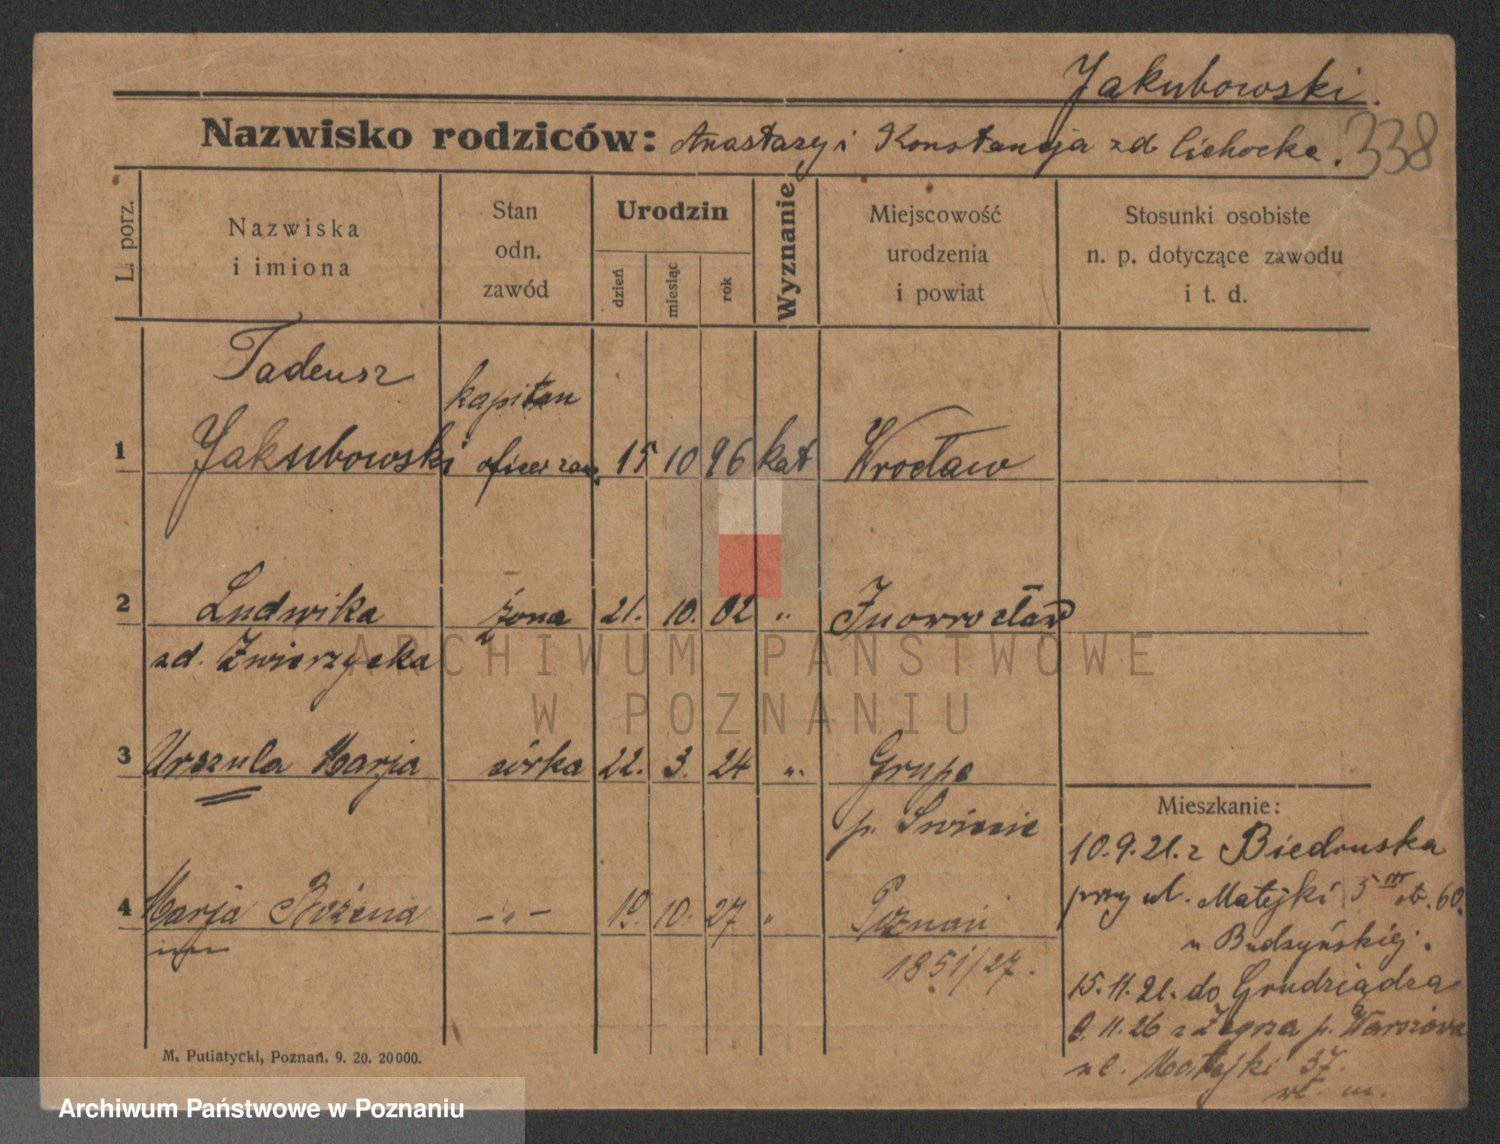 Jakubowski.
Nazwisko rodziców: Anastazy i Konstancja zd Cichocka.
338
L. porz.
Nazwiska
i imiona
Stan
odn.
zawód
Urodzin
dzień
miesiąc
rok
Wyznanie
Miejscowość
urodzenia
i powiat
Stosunki osobiste
n. p. dotyczące zawodu
i t. d.
Tadeusz
kapitan
1 Jakubowski oficer zaw. 15 10 96 kat Wrocław
2 Ludwika żona 21. 10. 02 " Inowrocław
zd. Zwierzycka
3 Urszula Marja córka 22. 3. 24 " Grupe
p. Swiecie
4 Marja Bożena -"- 10. 27 " Poznań
1851/27.
Mieszkanie:
10.9.21. z Biedruska
przy ul. Matejki 5 60.
u Budzyńskiej.
15.11.21. do Grudziądza
11.26 z Zegrza p. Warszawa
ul. Matejki 37.
M. Putiatycki, Poznań. 9. 20. 20000.
ARCHIWUM PAŃSTWOWE
W POZNANIU
Archiwum Państwowe w Poznaniu